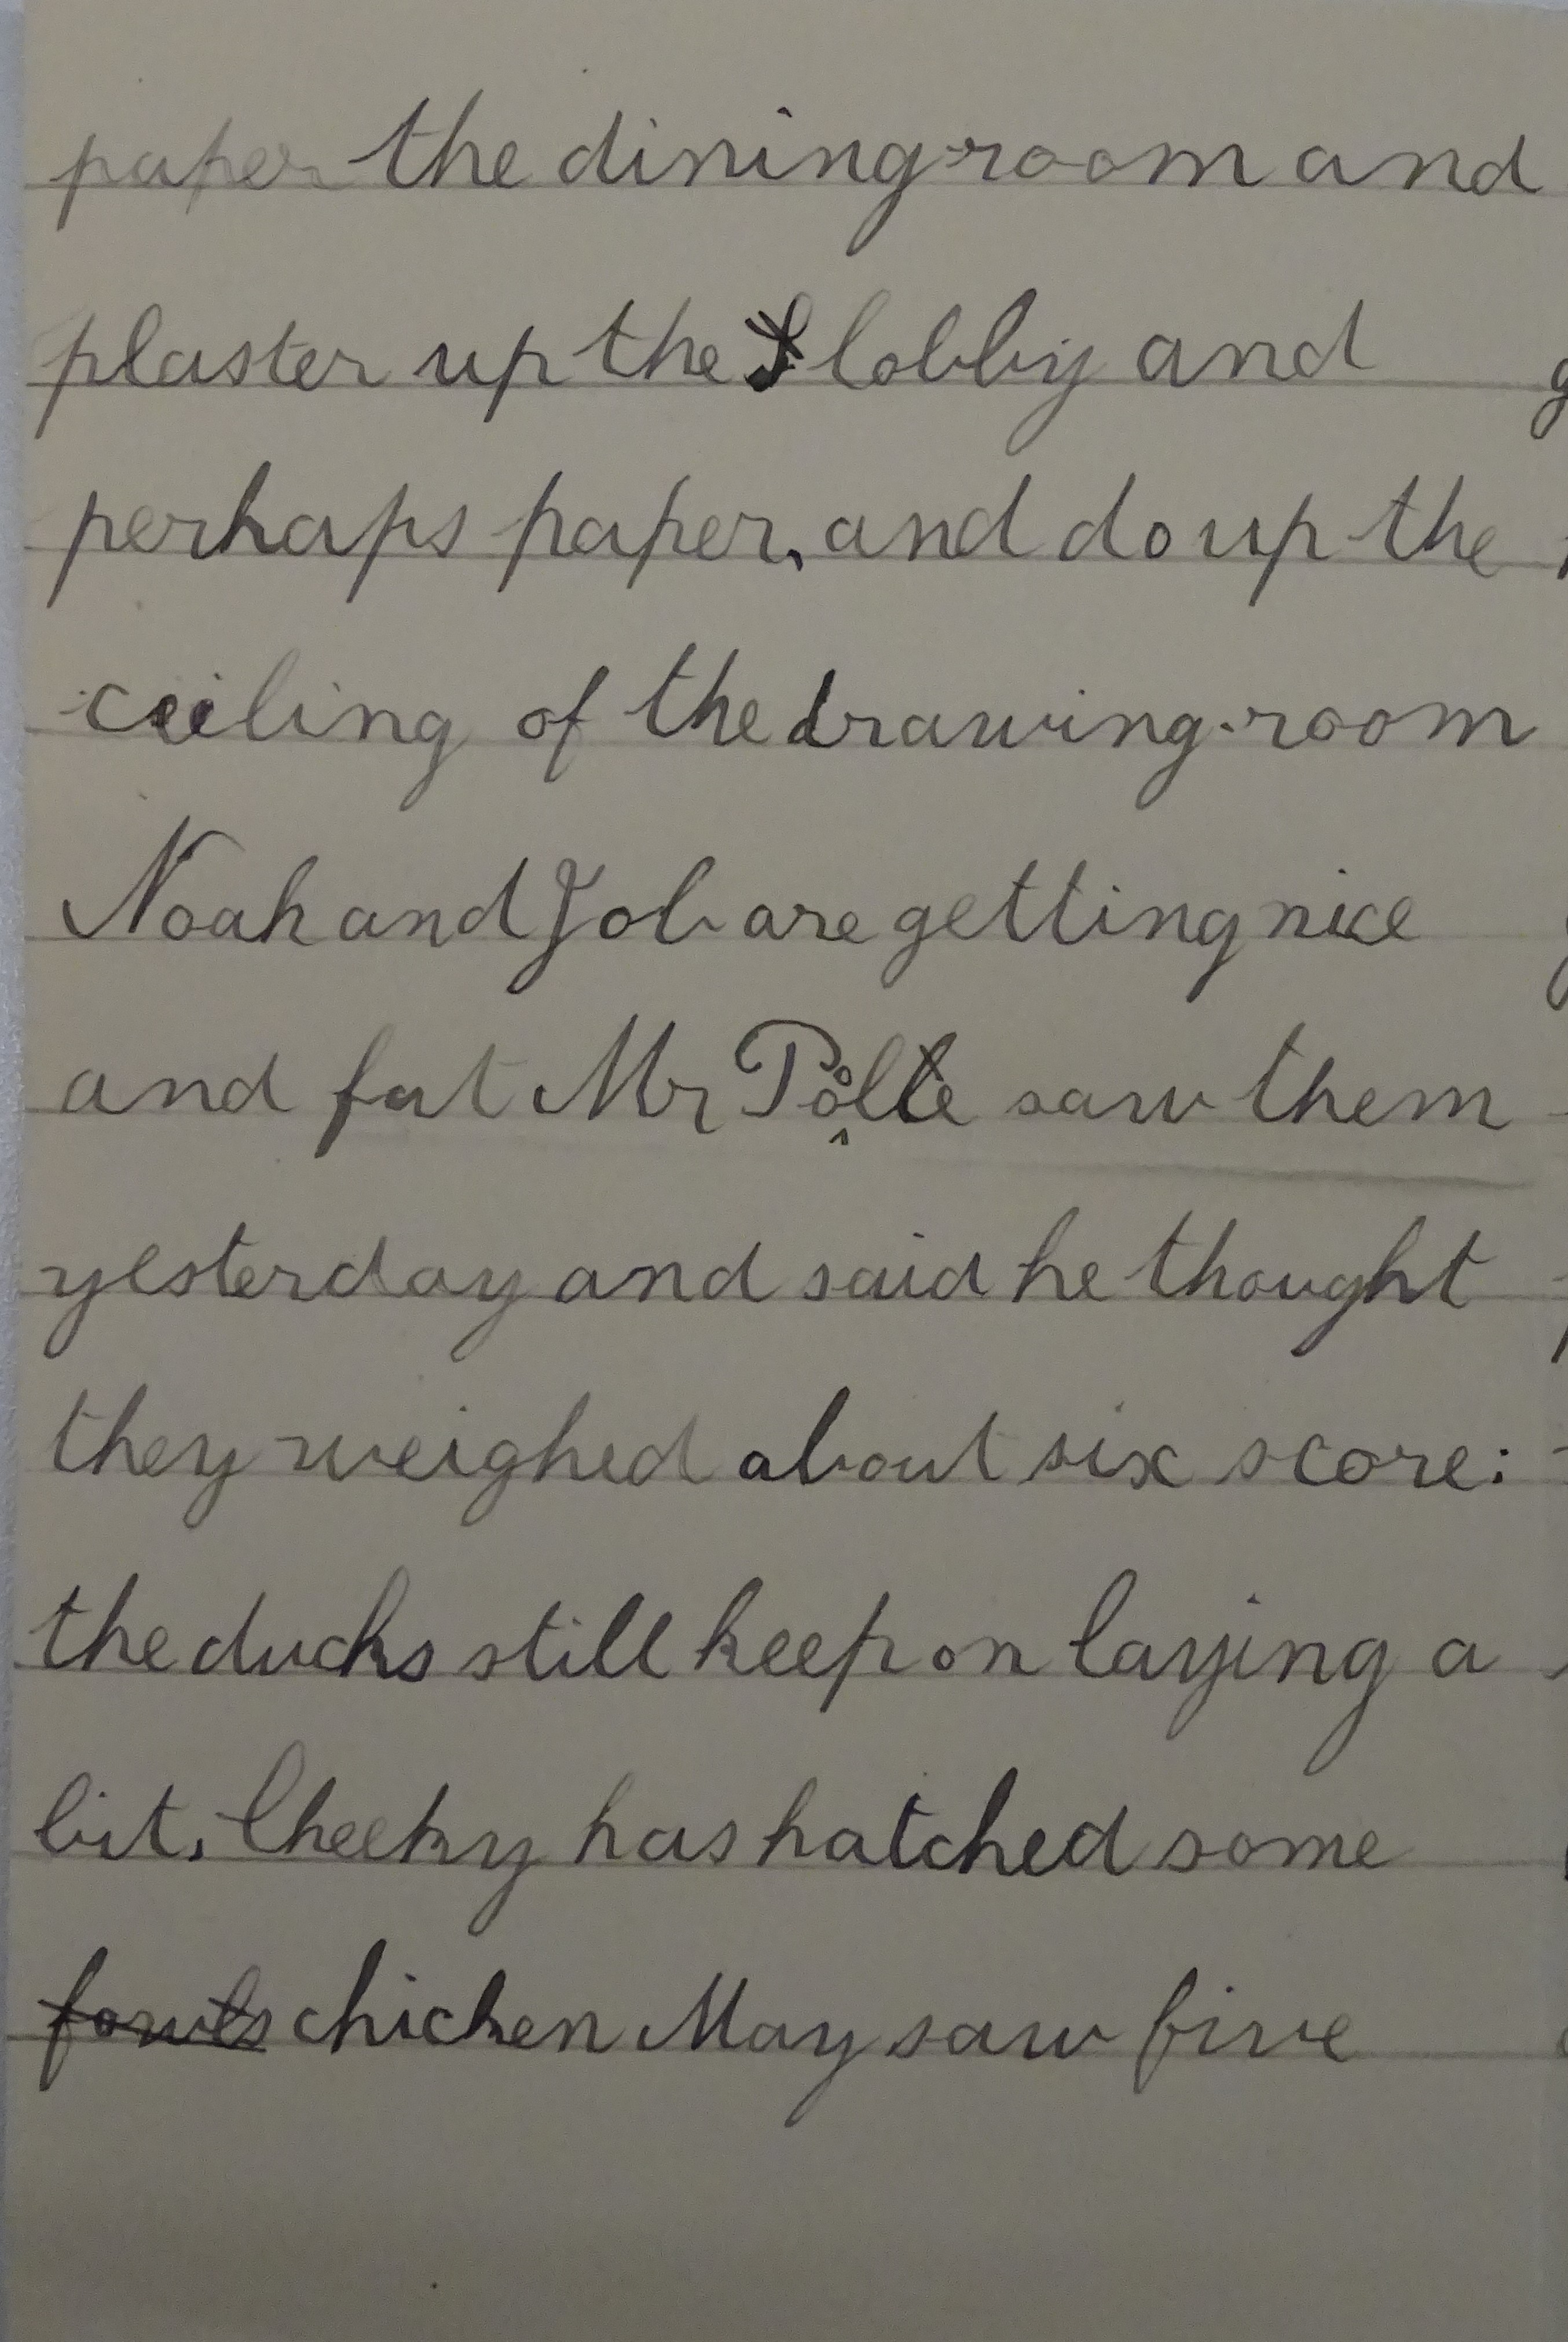 paper the dining-room and
plaster up the lobby and
perhaps paper, and do up the
ceiling of the drawing-room
Noah and Job are getting nice
and fat Mr saw them
yesterday and said he thought
they weighed about six score:
the ducks still keep on laying a
bit. Cheeky has hatched some
fowls chicken May saw five